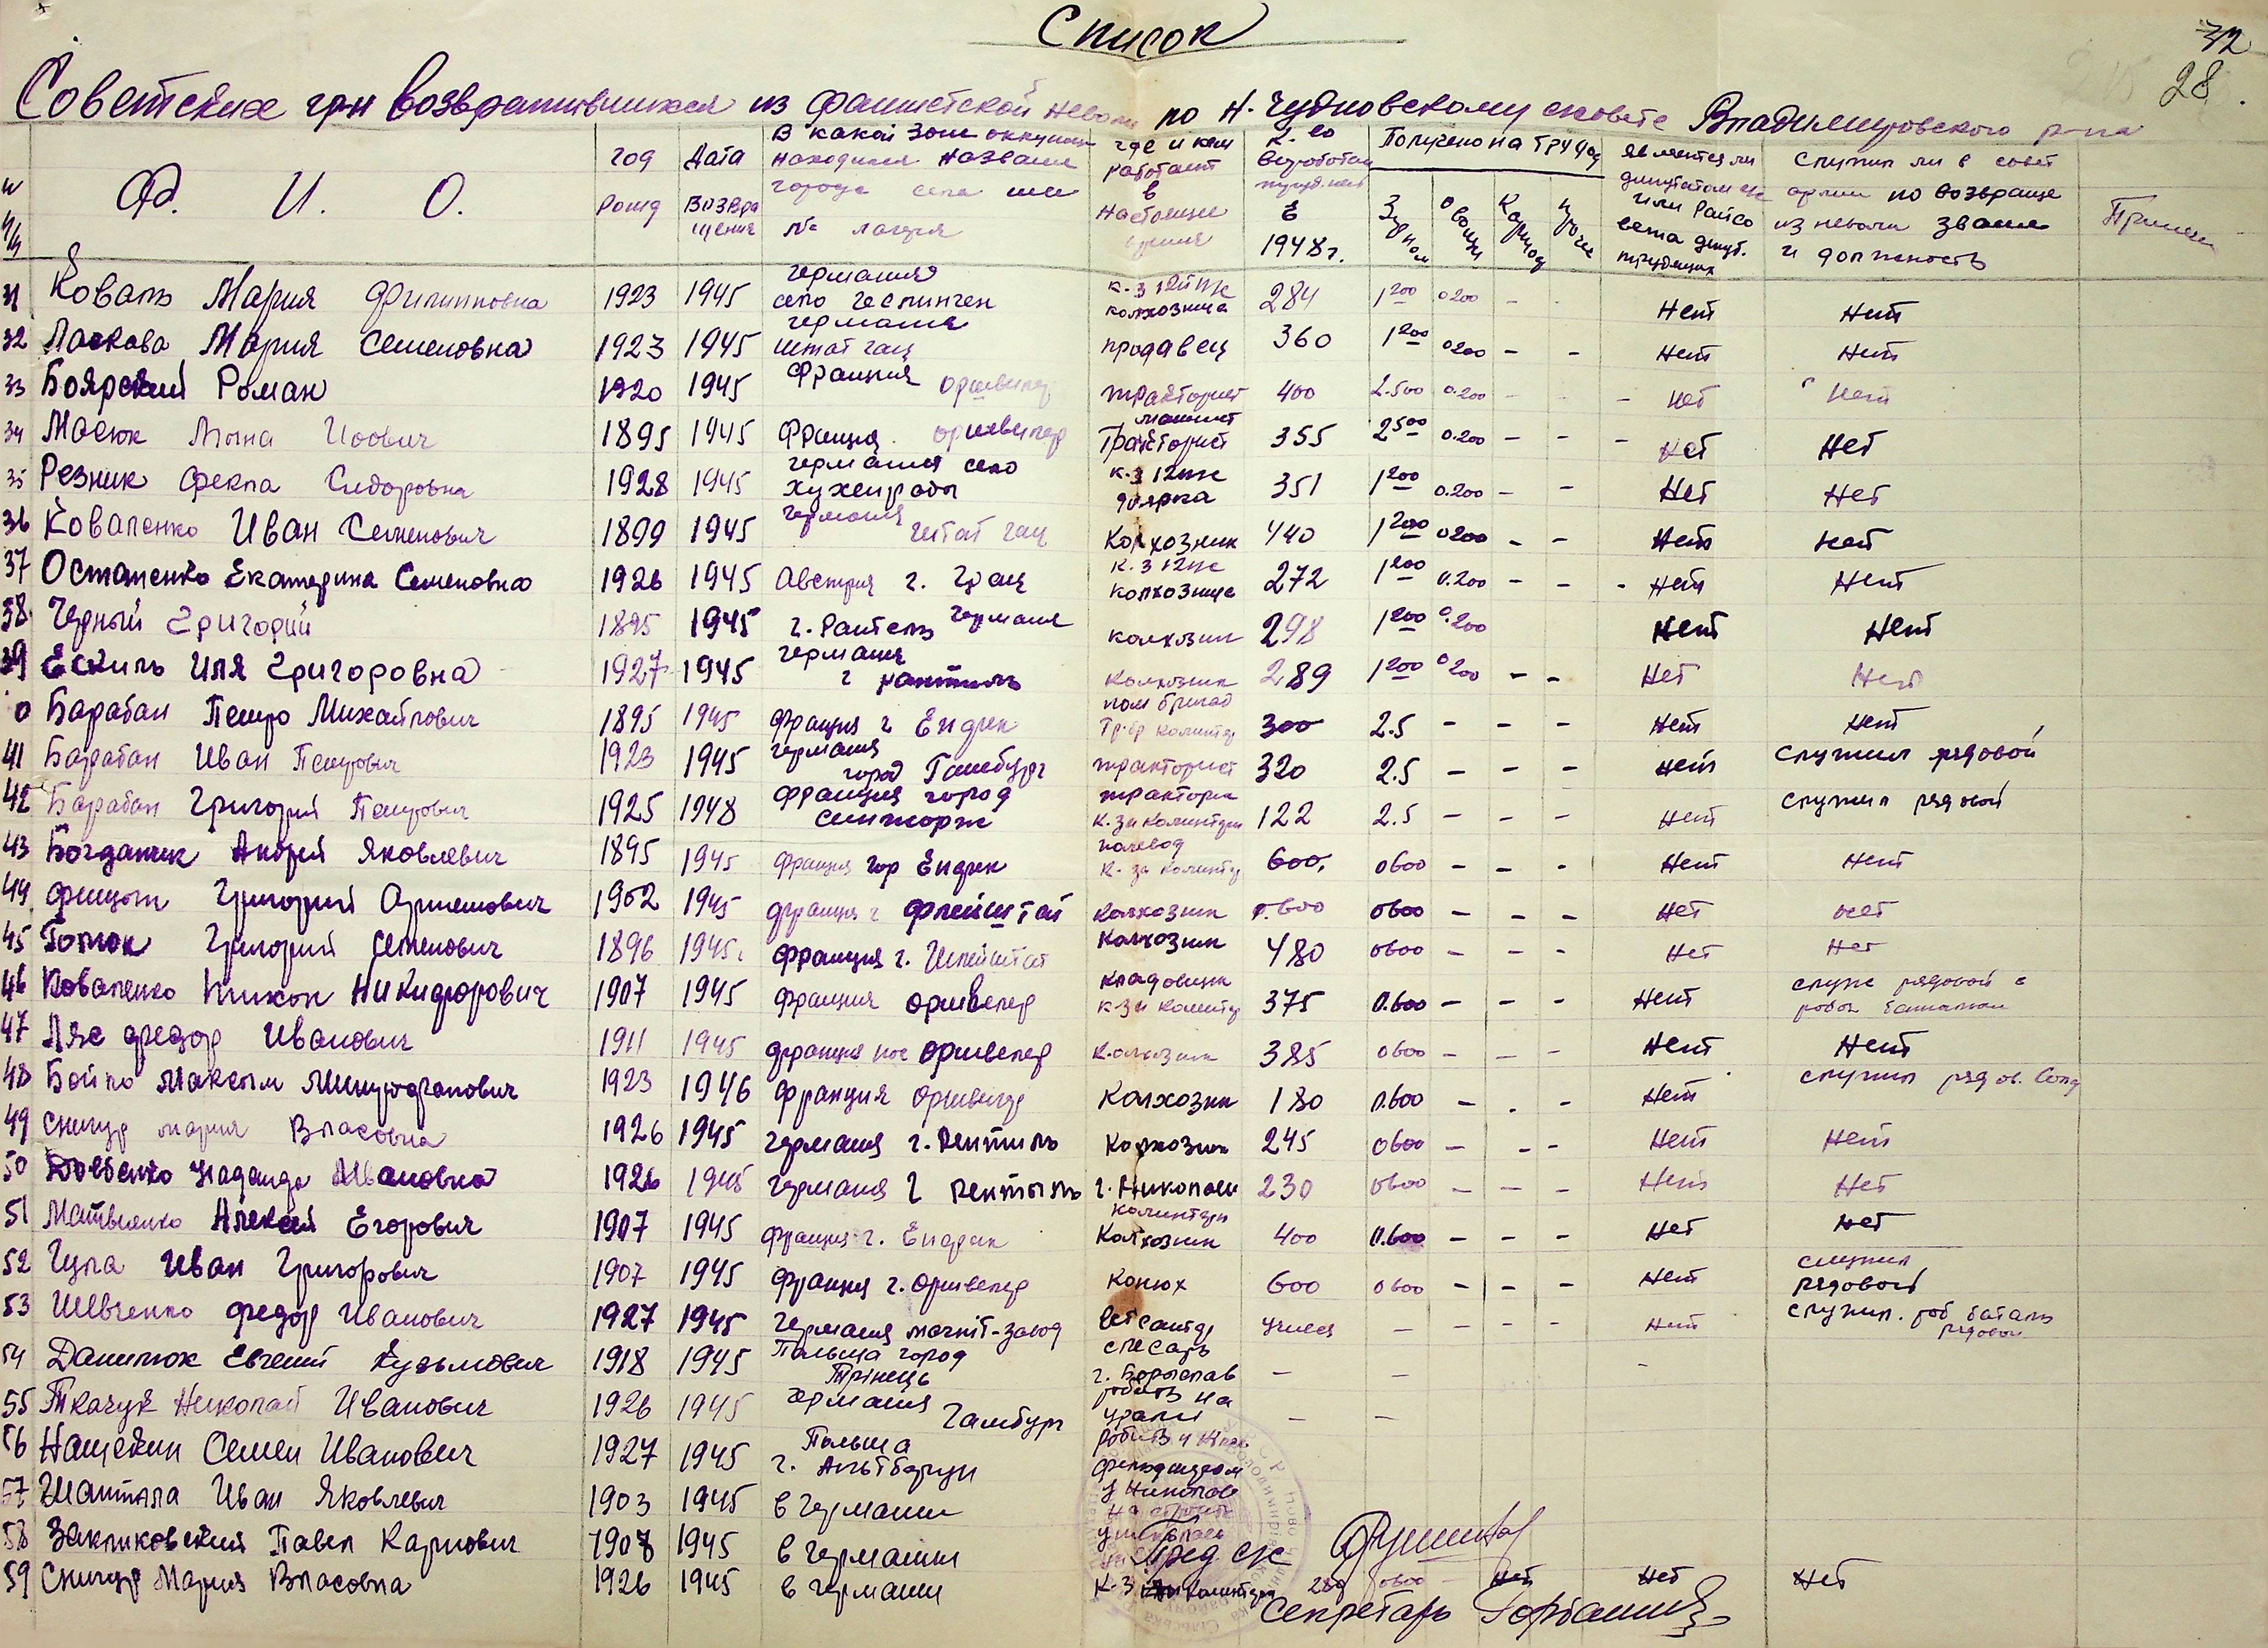 Список
32
28.
Советских гр-н возвратившихся из фашистской неволи по Н. Чудновскому с/совете Владимировского р-на
Ф. И. О.
год рожд
Дата возвращения
В какой зоне оккупации находился название города села или № лагеря
где и кем работает в настоящее время
К-во выработан трудодней в 1948 г.
Получено на труддн
Зерном
овощи
Картоф
проче
является ли депутатом с/с или Райсовета депут. трудящих
служил ли в совет армии по возвраще из неволи звание и должность
Примеч
31 Коваль Мария Филипповна 1923 1945 Германия село Геслинген колхозница 284 1200 0200 - - Нет Нет
32 Ласкава Мария Семеновна 1923 1945 Германия продавец 360 1200 0200 - - Нет Нет
33 Боярский Роман 1920 1945 Франция Оршвилер тракторист 400 2.500 0.200 - - - нет Нет
34 Масюк 1895 1945 Франция Оршвилер тракторист 355 2500 0.200 - - - нет Нет
35 Резник Фекла Сидоровна 1928 1945 Германия село доярка 351 1200 0.200 - - Нет Нет
36 Коваленко Иван Семенович 1899 1945 Германия Колхозник 440 1200 0200 - - Нет нет
37 Остапенко Екатерина Семеновна 1926 1945 Австрия г. Грац колхознице 272 1200 0.200 - - - Нет Нет
38 Черный Григорий 1895 1945 г. Рантель Германия колхозник 298 1200 0.200 Нет Нет
39 Ескиль Иля Григоровна 1927 1945 Германия г колхозник 289 1200 0200 - - Нет Нет
0 Барабан Петро Михайлович 1895 1945 Франция г Ендрик 300 2.5 - - - Нет Нет
41 Барабан Иван Петрович 1923 1945 Германия город Гамбург тракторист 320 2.5 - - - Нет служил рядовой
42 Барабан Григорий Петрович 1925 1948 Франция город Сентжорж 122 2.5 - - - Нет служил рядовой
43 Богданчик Андрей Яковлевич 1895 1945 Франция гор Ендрик 600. 0600 - - - Нет Нет
44 Григорий 1902 1945 Франция г Флейштат Колхозник 0600 - - - Нет нет
45 Григорий Семенович 1896 1945 Франция г. Колхозник 480 0600 - - - Нет Нет
46 Коваленко Никон Никифорович 1907 1945 Франция Оршвелер кладовщик 375 0.600 - - - Нет служ рядовой в рабоч батальон
47 Ляс Федор Иванович 1911 1945 Франция Оршвелер Колхозник 385 0600 - - - Нет Нет
48 Бойко Максим Митрофанович 1923 1946 Франция Оршвелер Колхозник 180 0.600 - - - Нет служил рядов. Солд
49 Снигур Мария Власовна 1926 1945 Германия г. Рентиль Колхозник 245 0600 - - - Нет Нет
50 Довбенко Надежда Ивановна 1926 1945 Германия г Рентыль г. Николаев 230 0600 - - - Нет Нет
51 Матвиенко Алексей Егорович 1907 1945 Франция г. Ендрик Колхозник 400 0.600 - - - Нет Нет
52 Гула Иван Григорович 1907 1945 Франция г. Оршвелер Конюх 600 0600 - - - Нет служил рядовой
53 Шевченко Федор Иванович 1927 1945 Германия магніт-завод - - - - Нет служил. роб баталь рядовой
54 Данилюк Евгений Кузьмович 1918 1945 Польша город Трінець слесарь г. Борыслав - - -
55 Ткачук Николай Иванович 1926 1945 Германия Гамбург работ на урали - -
56 Нащекин Семен Иванович 1927 1945 Польша г.
57 Шаптала Иван Яковлевич 1903 1945 в Германии
58 Закликовский Павел Карпович 1907 1945 в Германии
Пред с/с
59 Снигур Мария Власовна 1926 1945 в Германии К-з 0600 Нет Нет Нет
Секретарь